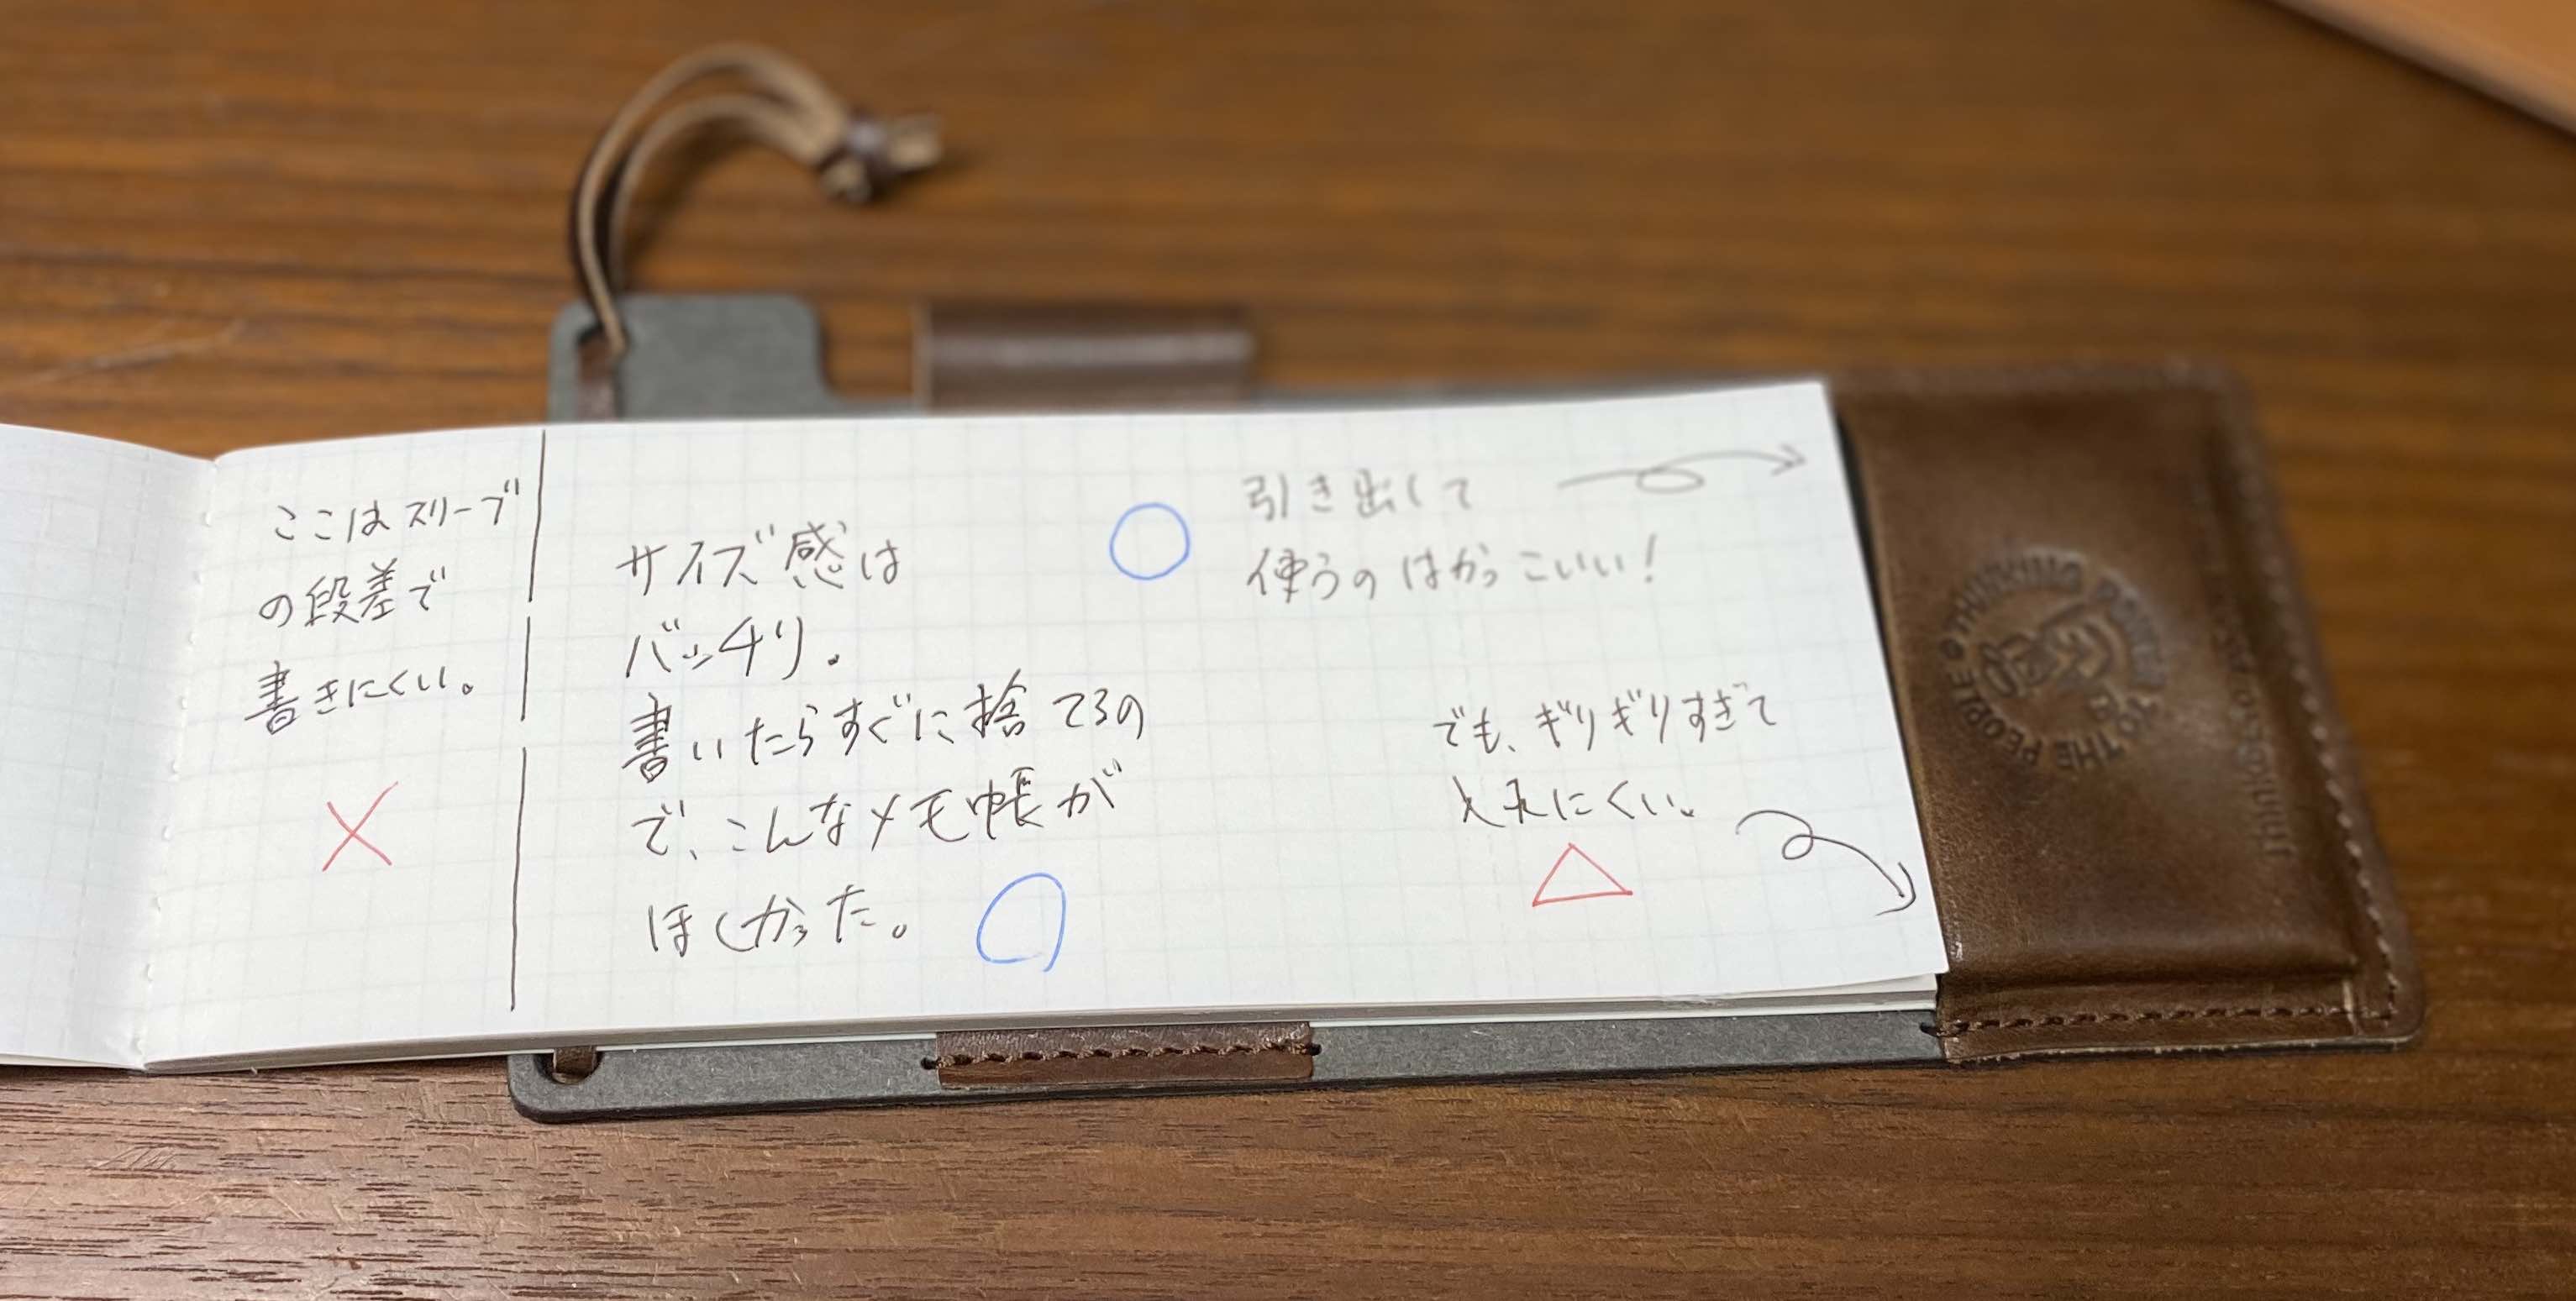 ここはスリーブ
の段差で
書きにくい。
サイズ感は
バッチリ。
書いたらすぐに捨てるの
で、こんなメモ帳が
ほしかった。
引き出して
使うのはかっこいい!
でも、ギリギリすぎて
入れにくい。
THINKING POWER TO THE PEOPLE